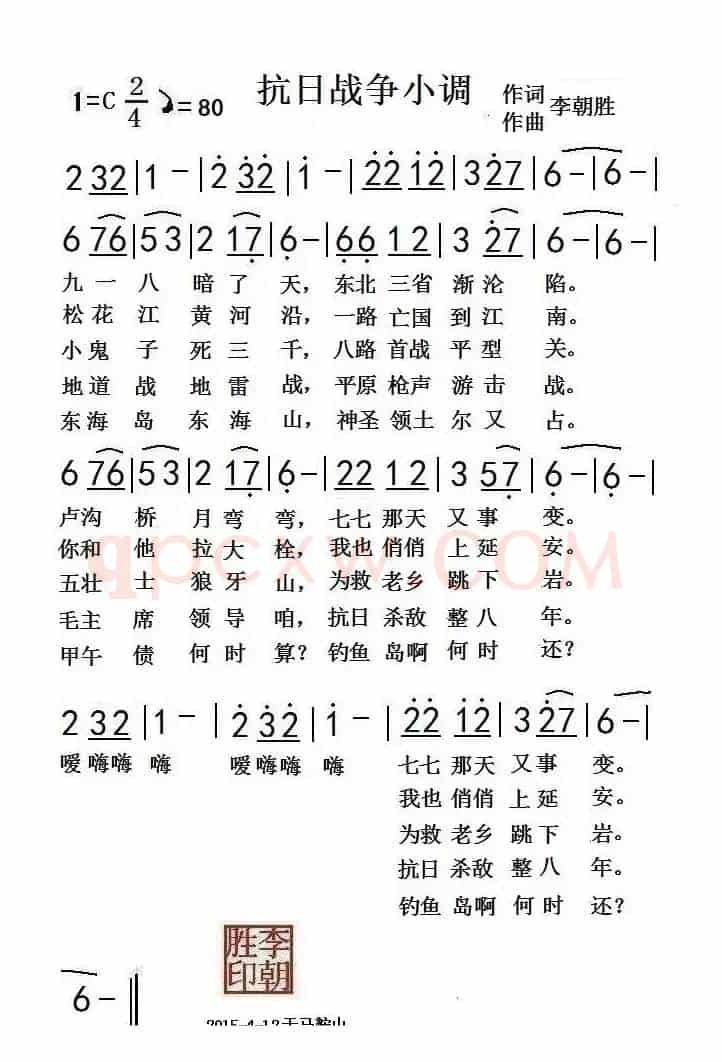 抗日战争小调
1=C 2/4 ♩=80
作词 作曲 李朝胜
2 32|1 -|2̇ 3̇2̇|1̇ -|2̇2̇ 1̇2̇|3 2̇7|6 -|6 -|
6 76|5 3|2 17̣|6̣ -|6̣6̣ 12|3 2̇7|6 -|6 -|
九一八暗了天，东北三省渐沦陷。
松花江黄河沿，一路亡国到江南。
小鬼子死三千，八路首战平型关。
地道战地雷战，平原枪声游击战。
东海岛东海山，神圣领土尔又占。
6 76|5 3|2 17̣|6̣ -|22 12|3 57̣|6̣ -|6̣ -|
卢沟桥月弯弯，七七那天又事变。
你和他拉大栓，我也俏俏上延安。
五壮士狼牙山，为救老乡跳下岩。
毛主席领导咱，抗日杀敌整八年。
甲午债何时算？钓鱼岛啊何时还？
2 32|1 -|2̇ 3̇2̇|1̇ -|2̇2̇ 1̇2̇|3 2̇7|6 -|
嗳嗨嗨嗨 嗳嗨嗨嗨 七七那天又事变。
我也俏俏上延安。
为救老乡跳下岩。
抗日杀敌整八年。
钓鱼岛啊何时还？
6 -‖
李朝胜印
2015-4-12于马鞍山
qpcxw.COM